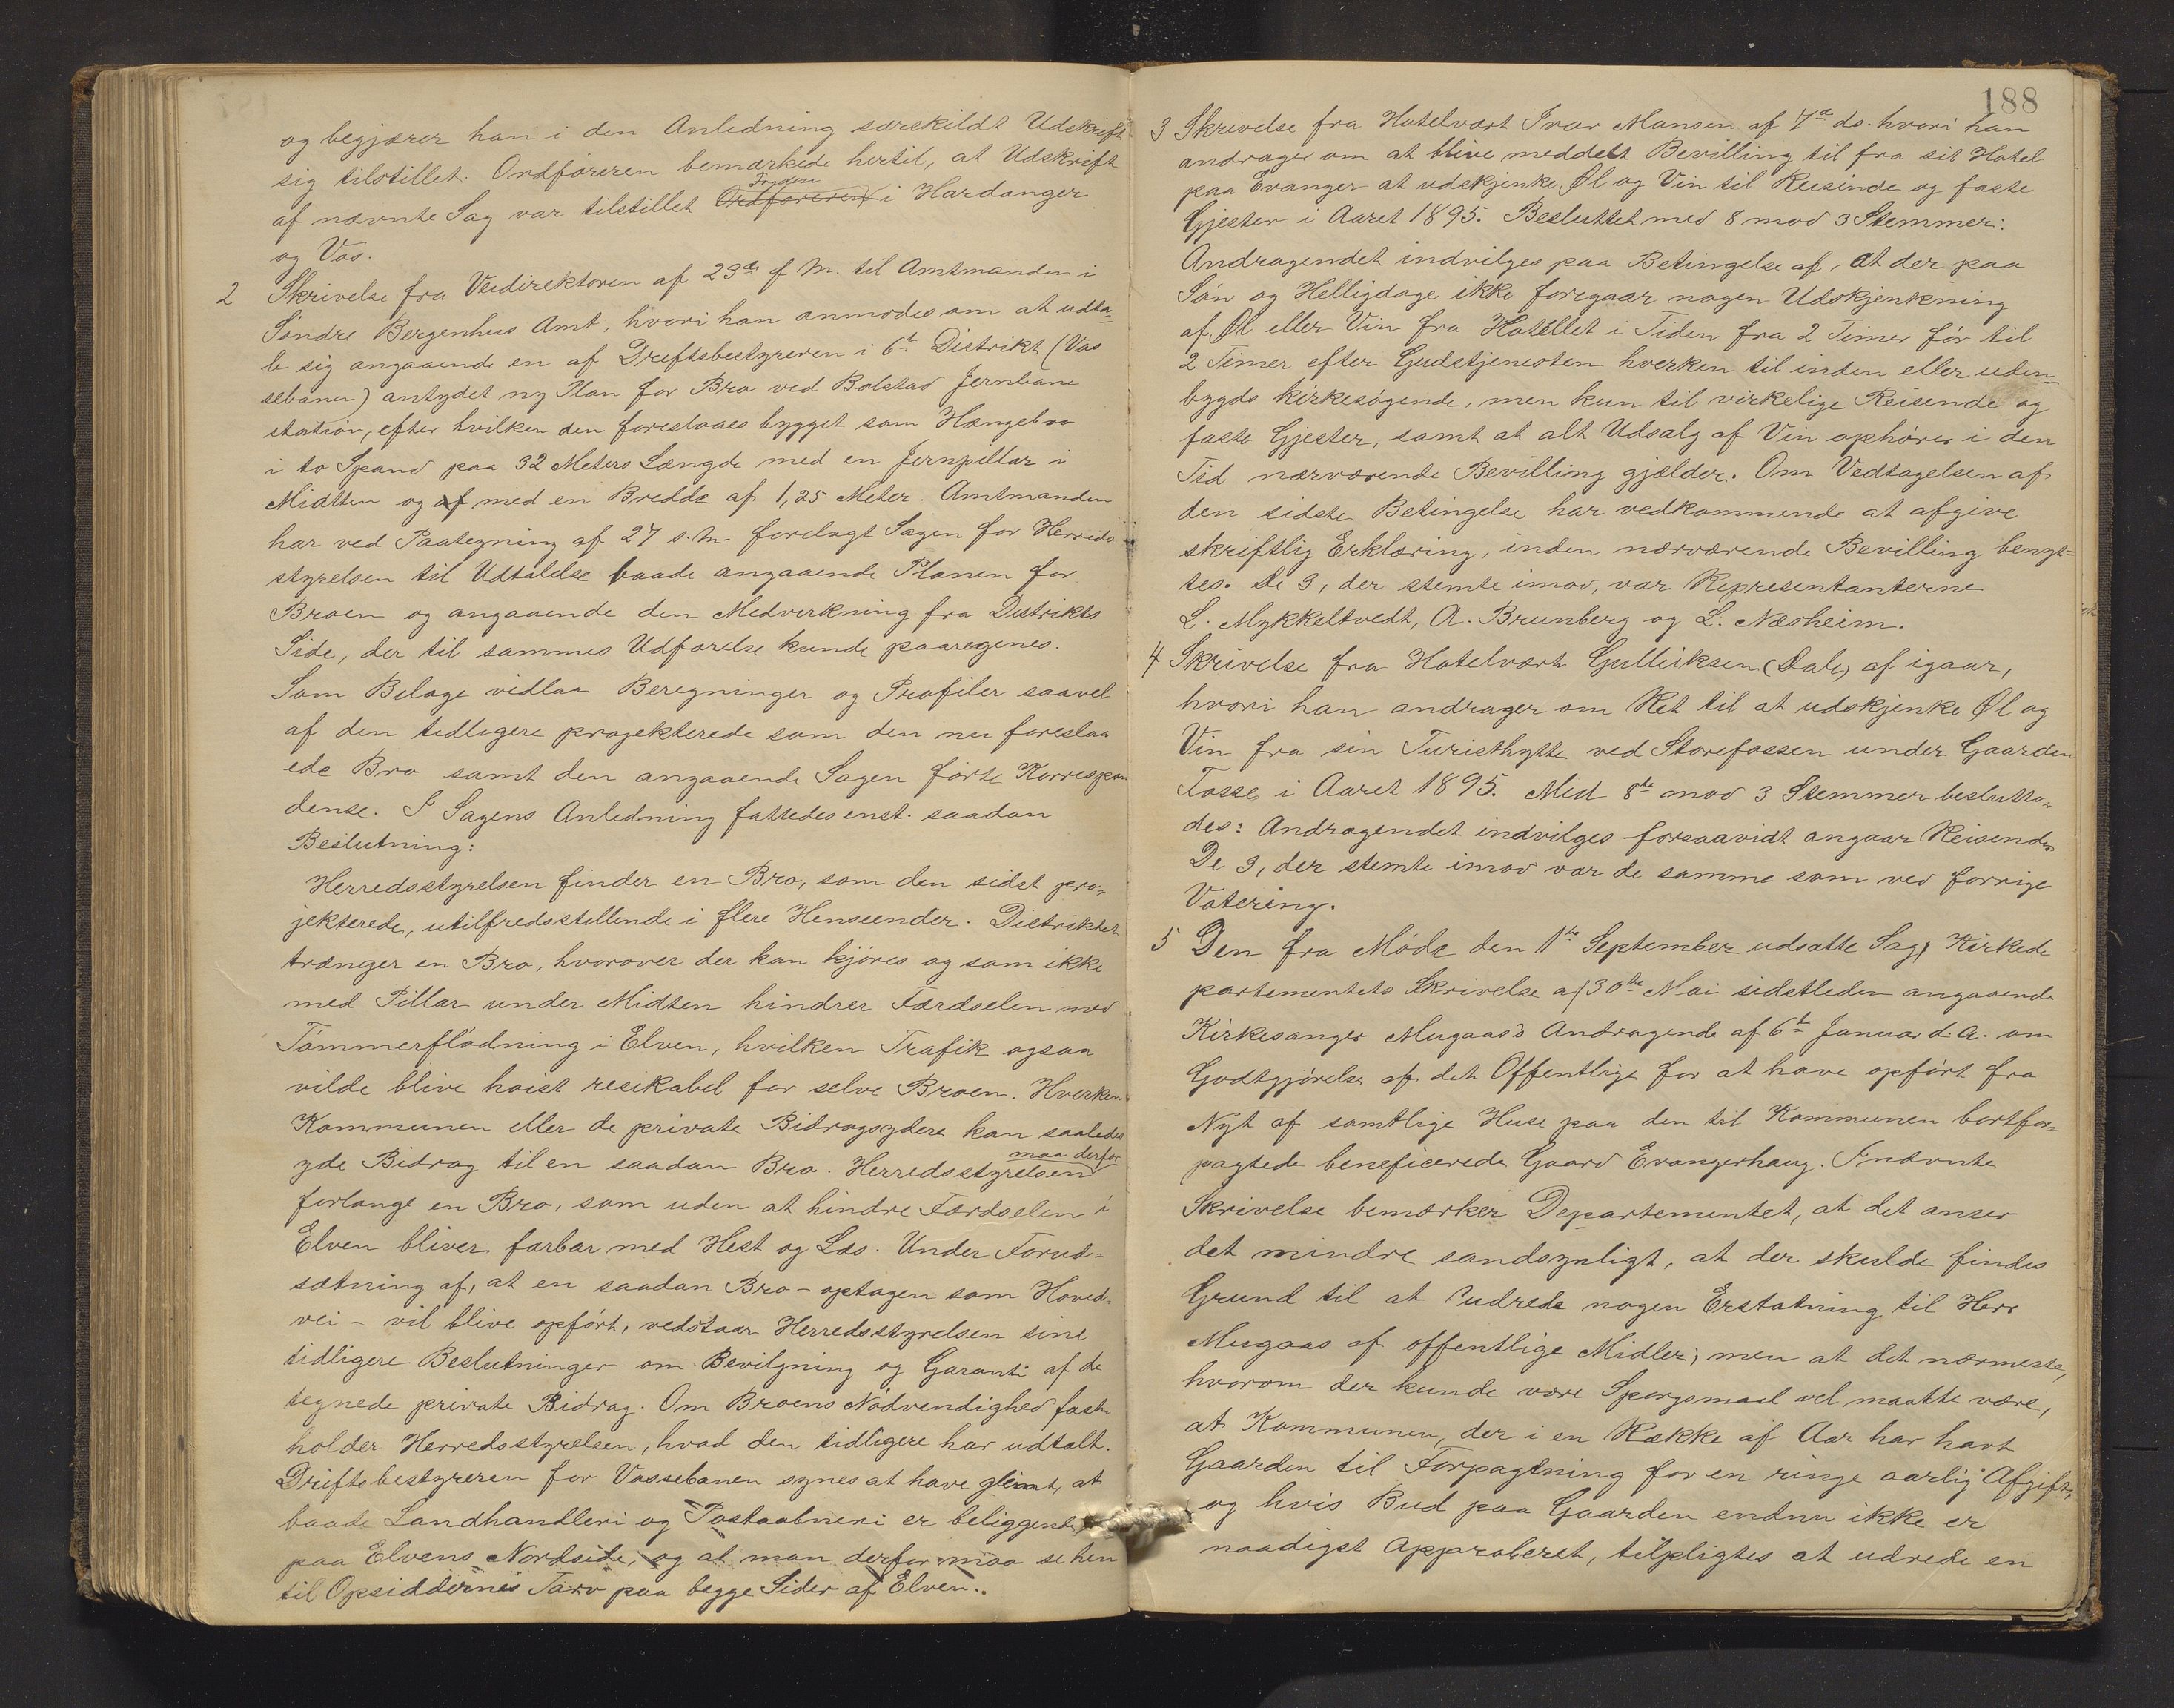 og begjærer han i den Anledning særskildt Udskrift
sig tilstillet. Ordføreren bemærkede hertil, at Udskrift
af nævnte Sag var tilstillet Ordføreren Fogden i Hardanger
og Vos.
2 Skrivelse fra Veidirektøren af 23de f M. til Amtmanden i
Søndre Bergenhus Amt, hvori han anmodes om at udta-
le sig angaaende en af Driftsbestyreren i 6te Distrikt (Vos
sebanen) antydet ny Plan for Bro ved Bolstad Jernbane
station, efter hvilken den foreslaaes bygget som Hængebro
i to Spand paa 32 Meters Længde med en Jernpillar i
Midtten og af med en Bredde af 1,25 Meter. Amtmanden
har ved Paategning af 27 s. M. forelagt Sagen for Herreds
styrelsen til Udtalelse baade angaaende Planen for
Broen og angaaende den Medvirkning fra Distrikts
Side, der til sammes Udførelse kunde paaregnes.
Som Bilage vidlaa Beregninger og Profiler saavel
af den tidligere projekterede som den nu foreslaa
ede Bro samt den angaaende Sagen førte Korrespon
dense. I Sagens Anledning fattedes enst. saadan
Beslutning:
Herredsstyrelsen finder en Bro, som den sidst pro-
jekterede, utilfredsstillende i flere Henseender. Distriktet
trænger en Bro, hvorover der kan kjøres og som ikke
med Pillar under Midten hindrer Færdselen med
Tømmerflødning i Elven, hvilken Trafik ogsaa
vilde blive høist resikabel for selve Broen. Hverken
Kommunen eller de private Bidragsydere kan saaledes
yde Bidrag til en saadan Bro. Herredsstyrelsen maa derfor
forlange en Bro, som uden at hindre Færdselen i
Elven bliver farbar med Hest og Læs. Under Forud-
sætning af, at en saadan Bro - optagen som Hoved-
vei - vil blive opført, vedstaar Herredsstyrelsen sine
tidligere Beslutninger om Bevilgning og Garanti af de
tegnede private Bidrag. Om Broens Nødvendighed fast-
holder Herredsstyrelsen, hvad den tidligere har udtalt.
Driftsbestyreren for Vossebanen synes at have glemt, at
baade Landhandleri og Postaabneri er beliggende
paa Elvens Nordside, og at man derfor maa se hen
til Opsiddernes Tarv paa begge Sider af Elven.
188
3 Skrivelse fra Hotelvært Ivar Monsen af 7de ds. hvori han
andrager om at blive meddelt Bevilling til fra sit Hotel
paa Evanger at udskjenke Øl og Vin til Reisende og faste
Gjester i Aaret 1895. Besluttet med 8 mod 3 Stemmer:
Andragendet indvilges paa Betingelse af, at der paa
Søn og Helligdage ikke foregaar nogen Udskjenkning
af Øl eller Vin fra Hotellet i Tiden fra 2 Timer før til
2 Timer efter Gudstjenesten hverken til inden eller uden-
bygds kirkesøgende, men kun til virkelige Reisende og
faste Gjester, samt at alt Udsalg af Vin ophører i den
Tid nærværende Bevilling gjælder. Om Vedtagelsen af
den sidste Betingelse har vedkommende at afgive
skriftlig Erklæring, inden nærværende Bevilling benyt-
tes. De 3, der stemte imod, var Representanterne
L. Mykkeltvedt, A. Brunberg og L. Næsheim.
4 Skrivelse fra Hotelvært Gulleiksen (Dale) af igaar,
hvori han andrager om Ret til at udskjenke Øl og
Vin fra sin Turisthytte ved Storefossen under Gaarden
Fosse i Aaret 1895. Med 8te mod 3 Stemmer beslutte-
des: Andragendet indvilges forsaavidt angaar Reisende.
De 3, der stemte imod var de samme som ved forrige
Votering.
5 Den fra Møde den 1te September udsatte Sag, Kirkede
partementets Skrivelse af 30te Mai sidstleden angaaende
Kirkesanger Mugaas's Andragende af 6te Januar d. A. om
Godtgjørelse af det Offentlige for at have opført fra
Nyt af samtlige Huse paa den til Kommunen bortfor-
pagtede beneficerede Gaard Evangerhaug. I nævnte
Skrivelse bemærker Departementet, at det anser
det mindre sandsynligt, at der skulde findes
Grund til at udrede nogen Erstatning til Herr
Mugaas af offentlige Midler; men at det nærmeste,
hvorom der kunde være Spørgsmaal vel maatte være,
at Kommunen, der i en Række af Aar har havt
Gaarden til Forpagtning for en ringe aarlig Afgift,
og hvis Bud paa Gaarden endnu ikke er
naadigst approberet, tilpligtes at udrede en